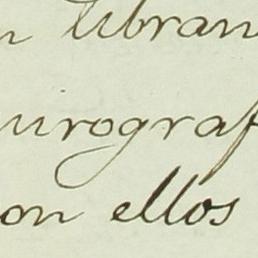 n libran
urograf
on ellos